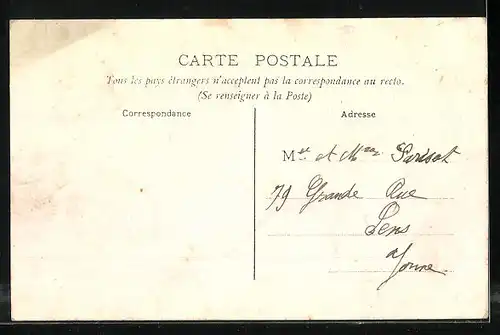 CARTE POSTALE
Tous les pays étrangers n'acceptent pas la correspondance au recto.
(Se renseigner à la Poste)
Correspondance
Adresse
Mr et Mme Parisot
79 Grande Rue
Sens
Yonne